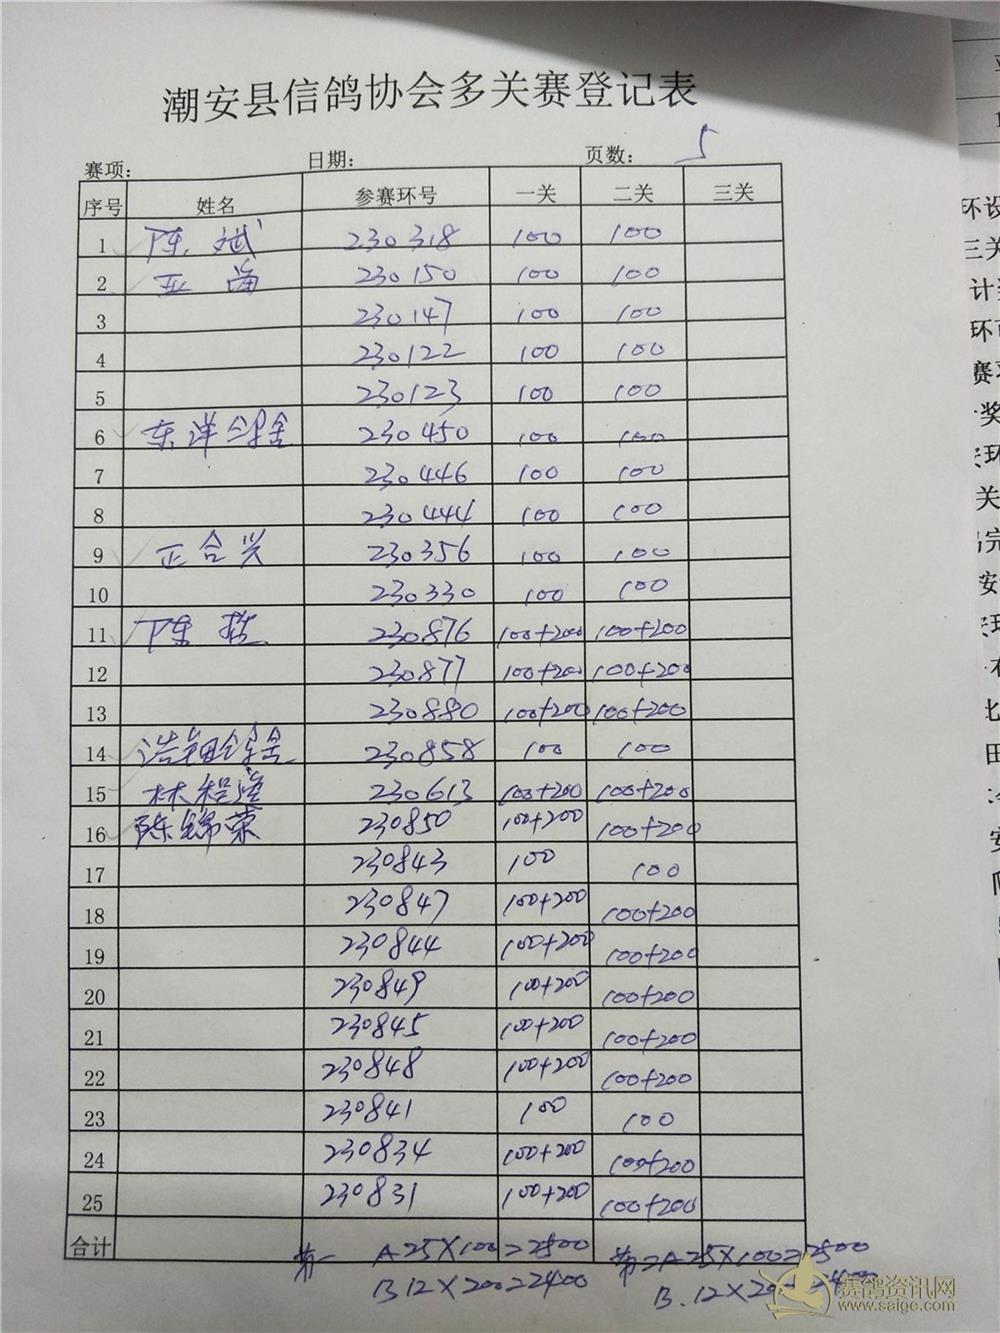 潮安县信鸽协会多关赛登记表
赛项: 日期: 页数: 5
序号 姓名 参赛环号 一关 二关 三关
1 陈斌 230318 100 100
2 亚海 230150 100 100
3 230147 100 100
4 230122 100 100
5 230123 100 100
6 东洋 230450 100 100
7 230446 100 100
8 230444 100 100
9 正合兴 230356 100 100
10 230330 100 100
11 陈哲 230876 100+200 100+200
12 230877 100+200 100+200
13 230880 100+200 100+200
14 浩钿 230858 100 100
15 林 230613 100+200 100+200
16 陈锦荣 230850 100+200 100+200
17 230843 100 100
18 230847 100+200 100+200
19 230844 100+200 100+200
20 230849 100+200 100+200
21 230845 100+200 100+200
22 230848 100+200 100+200
23 230841 100 100
24 230834 100+200 100+200
25 230831 100+200 100+200
合计 第一 A 25×100=2500 第2 A 25×100=2500
B 12×200=2400 B.12×200=2400
赛鸽资讯网
www.saigc.com
环设
三关
计
环
赛
奖
环
关
完
安
北
田
安